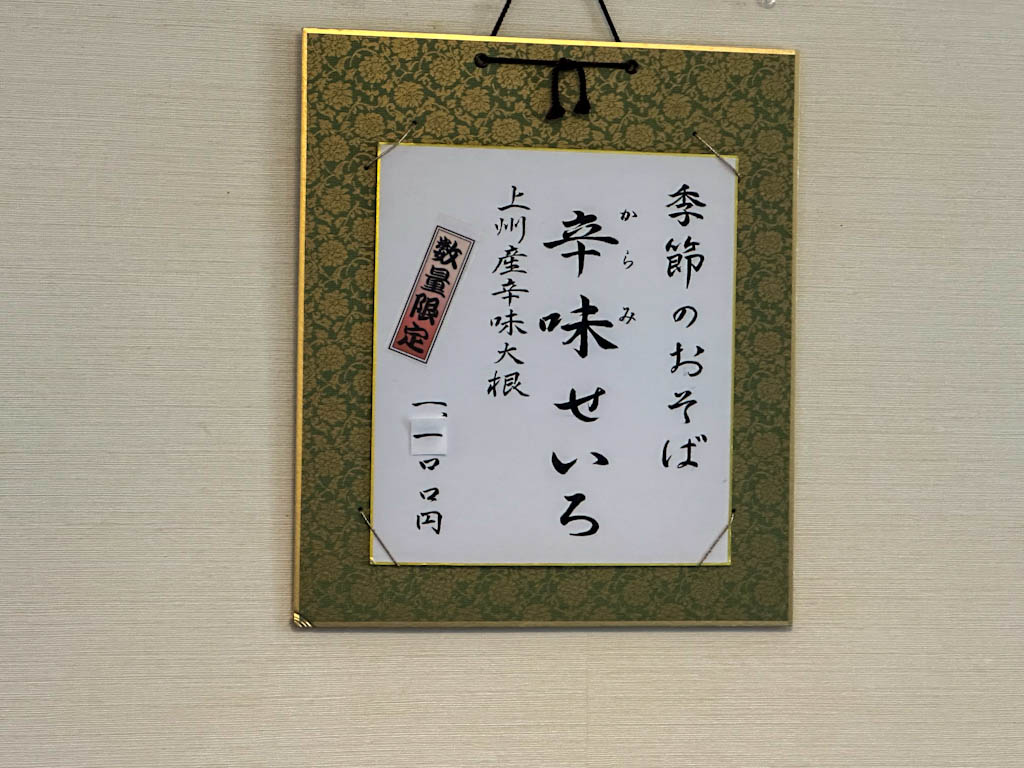 季節のおそば
からみ
辛味せいろ
上州産辛味大根
数量限定
一、一〇〇円